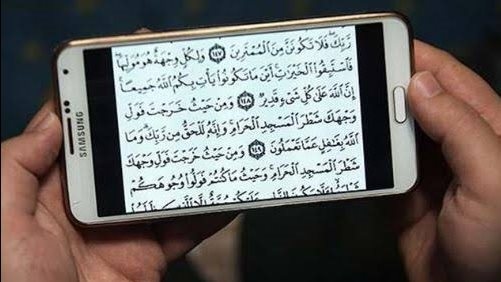 رَبِّكَ فَلَا تَكُونَنَّ مِنَ الْمُمْتَرِينَ ١٤٧ وَلِكُلٍّ وِجْهَةٌ هُوَ مُوَلِّيهَا
فَاسْتَبِقُوا الْخَيْرَاتِ أَيْنَ مَا تَكُونُوا يَأْتِ بِكُمُ اللَّهُ جَمِيعًا
إِنَّ اللَّهَ عَلَى كُلِّ شَيْءٍ قَدِيرٌ ١٤٨ وَمِنْ حَيْثُ خَرَجْتَ فَوَلِّ
وَجْهَكَ شَطْرَ الْمَسْجِدِ الْحَرَامِ وَإِنَّهُ لَلْحَقُّ مِن رَّبِّكَ وَمَا
اللَّهُ بِغَافِلٍ عَمَّا تَعْمَلُونَ ١٤٩ وَمِنْ حَيْثُ خَرَجْتَ فَوَلِّ وَجْهَكَ
شَطْرَ الْمَسْجِدِ الْحَرَامِ وَحَيْثُ مَا كُنتُمْ فَوَلُّوا وُجُوهَكُمْ
SAMSUNG